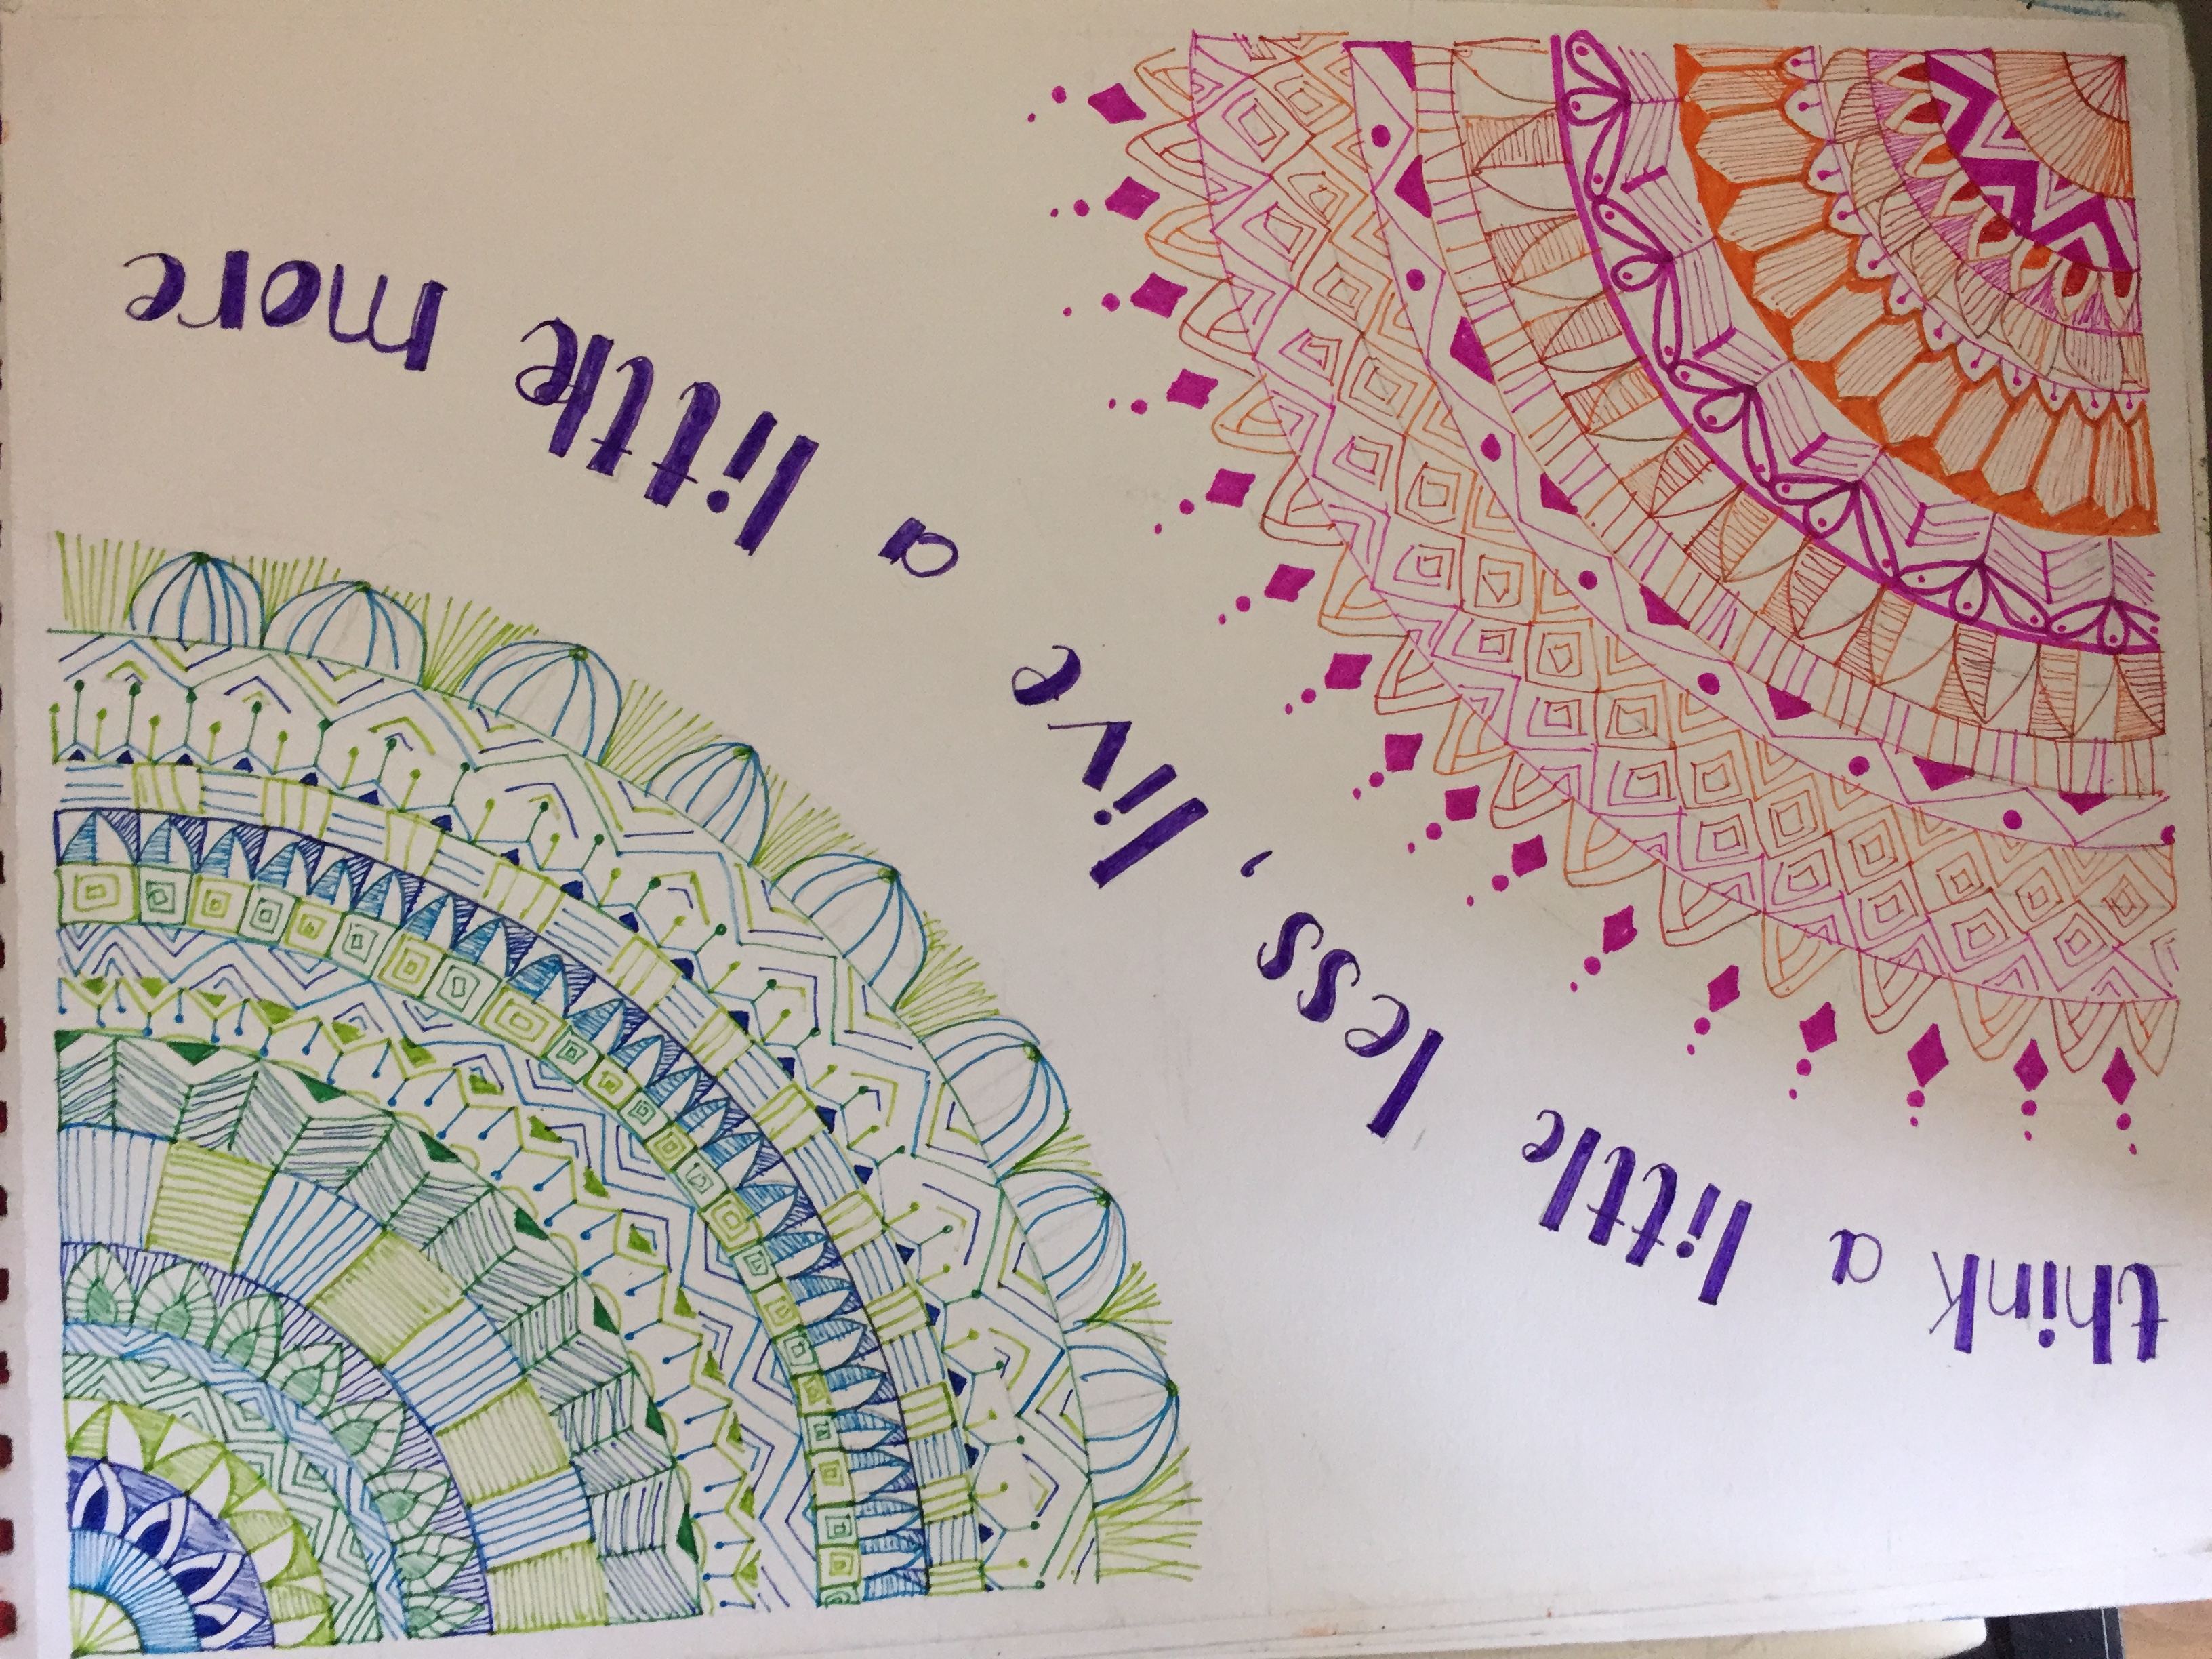 think a little less, live a little more